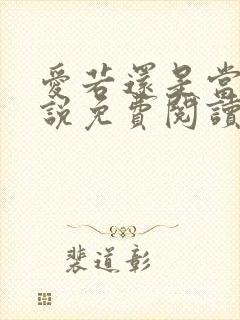 愛若還是當
說免費閱讀
裴道彰